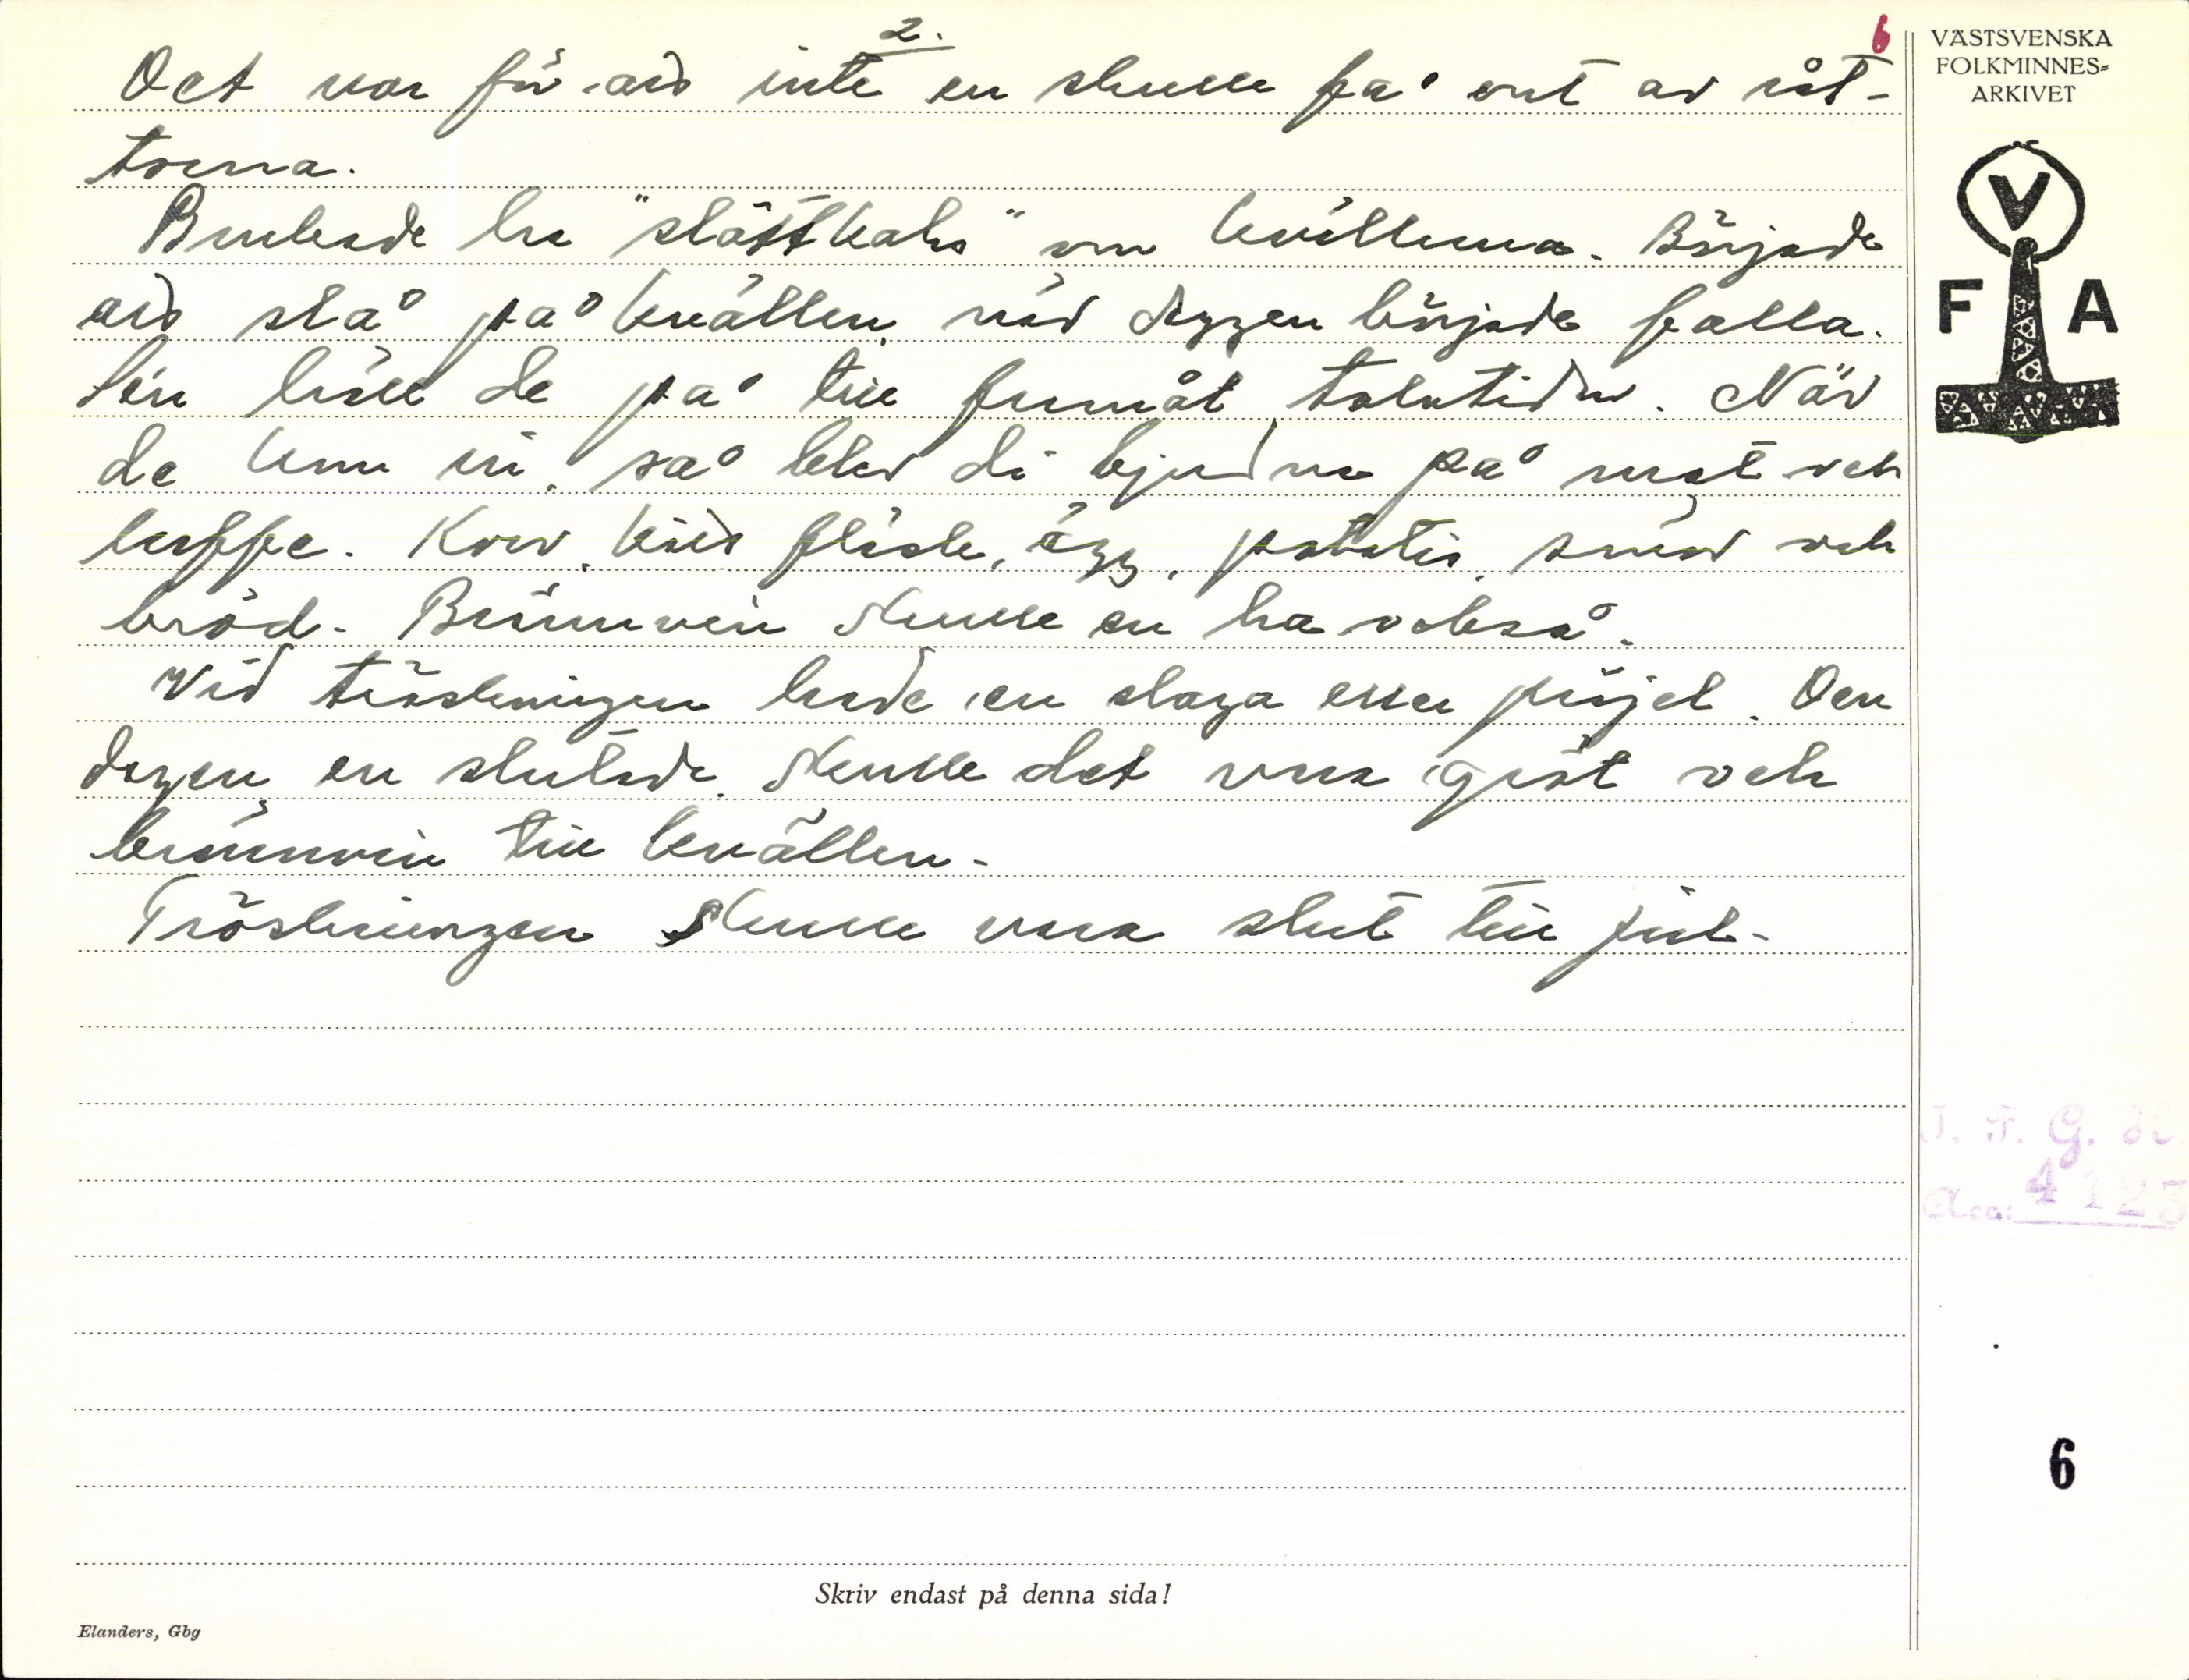 2.
6
Det var för att inte en skulle få ont av råt-
torna.
Brukade ha "slåttkalas" om kvällarna. Började
att slå på kvällen, när daggen började falla.
Sen höll de på till framåt tolvtiden. När
de kom in, så blev di bjudna på mat och
kaffe. Korv, kött fläsk, ägg, potatis, smör och
bröd. Brännvin skulle en ha också.
Vid tröskningen hade en slaga eller pröjel. Den
dagen en slutade, skulle det vara gröt och
brännvin till kvällen.
Tröskningen skulle vara slut till jul.
VÄSTSVENSKA
FOLKMINNES-
ARKIVET
V
F A
I. F. G. H.
Acc: 4123
6
Skriv endast på denna sida!
Elanders, Gbg